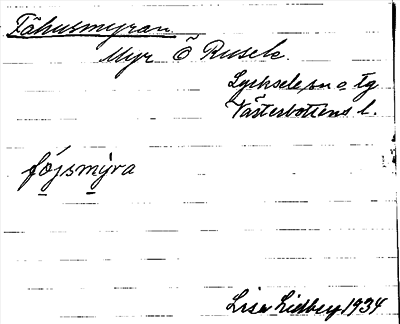 Fähusmyran.
Myr Ö Rusele.
Lycksele sn o tg
Västerbottens l.
föjsmýra
Lisa Lidberg 1934